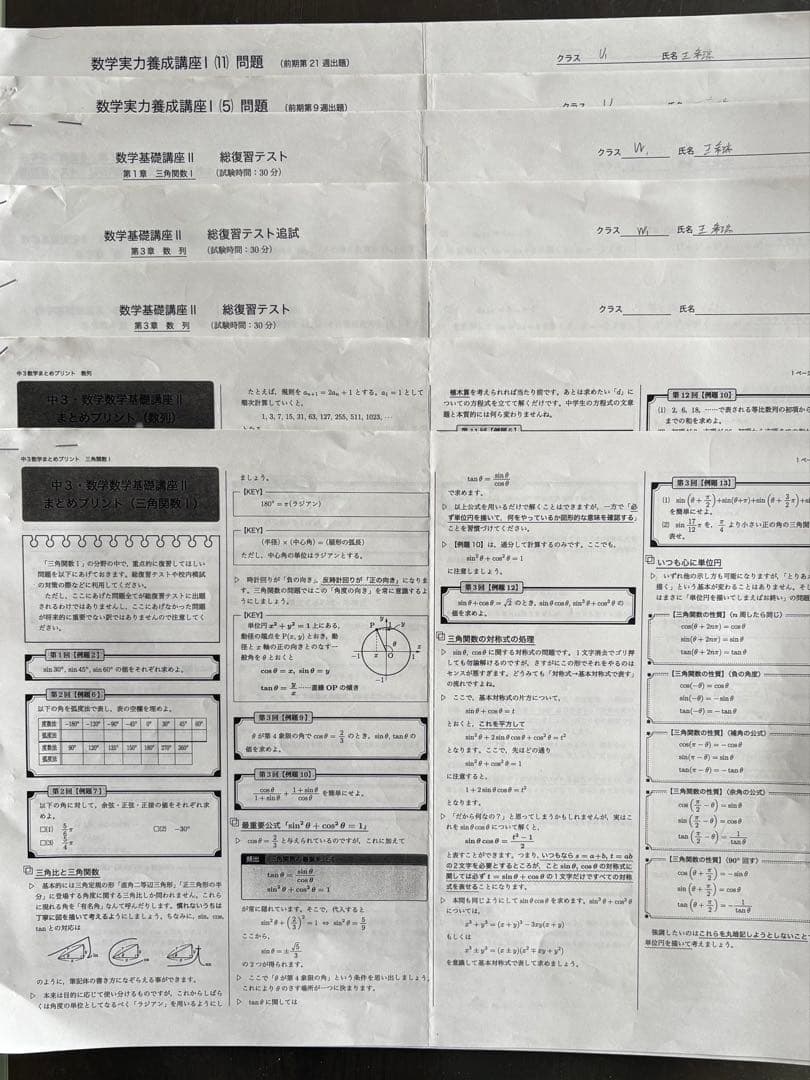 数学実力養成講座Ⅰ (11) 問題 (前期第21週出題)
クラス 氏名
数学実力養成講座Ⅰ (5) 問題 (前期第9週出題)
数学基礎講座Ⅱ 総復習テスト
第1章 三角関数Ⅰ (試験時間：30分)
クラス W1 氏名
数学基礎講座Ⅱ 総復習テスト追試
第3章 数列 (試験時間：30分)
クラス W1 氏名
数学基礎講座Ⅱ 総復習テスト
第3章 数列 (試験時間：30分)
クラス 氏名
中3数学まとめプリント 数列
中3・数学数学基礎講座Ⅱ
まとめプリント（数列）
たとえば，規則を aₙ₊₁ = 2aₙ + 1 とする。a₁ = 1 として
順次計算していくと，
1, 3, 7, 15, 31, 63, 127, 255, 511, 1023, …
植木算を考えられれば当たり前です。あとは求めたい「d」に
ついての方程式を立てて解くだけです。中学生の方程式の文章
題と本質的には何ら変わりませんね。
1ペー
第12回【例題10】
(1) 2, 6, 18, ……で表される等比数列の初項から
までの和を求めよ。
中3数学まとめプリント 三角関数Ⅰ
中3・数学数学基礎講座Ⅱ
まとめプリント（三角関数Ⅰ）
「三角関数Ⅰ」の分野の中で，重点的に復習してほしい
問題を以下にあげておきます。総復習テストや校内模試
の対策の際などに利用してください。
ただし，ここにあげた問題全てが総復習テストに出題
されるわけではありませんし，ここにあげなかった問題
が将来的に重要でない訳ではありませんので注意してく
ださい。
第1回【例題2】
sin 30°, sin 45°, sin 60° の値をそれぞれ求めよ。
第2回【例題6】
以下の角を弧度法で表し，表の空欄を埋めよ。
度数法 −180° −120° −90° −45° 0° 30° 45° 60°
弧度法
度数法 90° 120° 135° 150° 180° 270° 360°
弧度法
第2回【例題7】
以下の角に対して，余弦・正弦・正接の値をそれぞれ求
めよ。
□(1) 5/6 π □(2) −30°
□(3) 5/4 π
三角比と三角関数
▷ 基本的には三角定規の形「直角二等辺三角形」「正三角形の半
分」に登場する角度に関する三角比しか問われません。これら
に現れる角を「有名角」なんて呼んだりします。慣れないうちは
丁寧に図を描いて考えるようにしましょう。ちなみに，sin, cos,
tan との対応は
のように，筆記体の書き方になぞらえる事ができます。
▷ 本来は目的に応じて使い分けるものですが，これからしばら
くは角度の単位としてなるべく「ラジアン」を用いるようにし
ましょう。
【KEY】
180° = π(ラジアン)
【KEY】
(半径) × (中心角) = (扇形の弧長)
ただし，中心角の単位はラジアンとする。
▷ 時計回りが「負の向き」，反時計回りが「正の向き」になりま
す。三角関数の問題ではこの「角度の向き」を常に意識するよ
うにしましょう。
【KEY】
単位円 x² + y² = 1 上にある，
動径の端点を P(x, y) とおき，動
径と x 軸の正の向きとのなす一
般角を θ とおくと
cos θ = x, sin θ = y
tan θ = y/x ……直線 OP の傾き
第3回【例題9】
θ が第4象限の角で cos θ = 2/3 のとき，sin θ, tan θ の
値を求めよ。
第3回【例題10】
cos θ/(1 + sin θ) + (1 + sin θ)/cos θ を簡単にせよ。
最重要公式「sin² θ + cos² θ = 1」
▷ cos θ = 2/3 と与えられているのですが，これに加えて
頻出
tan θ = sin θ/cos θ
sin² θ + cos² θ = 1
が常に隠れています。そこで，代入すると
sin² θ + (2/3)² = 1 ⇔ sin² θ = 5/9
ここから，
sin θ = ± √5/3
の2つが得られます。
▷ ここで「θ が第4象限の角」という条件を思い出しましょう。
これにより θ のさす場所が一つに決まります。
▷ tan θ に関しては
tan θ = sin θ/cos θ
で求めます。
▷ 以上公式を用いるだけで解くことはできますが，一方で「必
ず単位円を描いて，何をやっているか図形的な意味を確認する」
ことを習慣づけてください。
▷ 【例題10】は，通分して計算するのみです。ここでも，
sin² θ + cos² θ = 1
に注意しましょう。
第3回【例題12】
sin θ + cos θ = √2 のとき，sin θ cos θ, sin³ θ + cos³ θ の
値を求めよ。
三角関数の対称式の処理
▷ sin θ, cos θ に関する対称式の問題です。1文字消去でゴリ押
しても勿論解けるのですが，さすがにこの形でそれをやるのは
センスが悪すぎます。どうみても「対称式→基本対称式で表す」
の流れですよね。
▷ ここで，基本対称式の片方について，
sin θ + cos θ = t
とおくと，これを平方して
sin² θ + 2 sin θ cos θ + cos² θ = t²
となります。ここで，先ほど通り
sin² θ + cos² θ = 1
に注意すると，
1 + 2 sin θ cos θ = t²
となります。
▷ 「だから何なの？」と思ってしまうかもしれませんが，実はこ
れを sin θ cos θ について解くと，
sin θ cos θ = (t² − 1)/2
と表すことができます。つまり，いつもなら s = a + b, t = ab
の2文字を必要とするところが，こと sin θ, cos θ の対称式に
関しては必ず t = sin θ + cos θ の1文字だけですべての対称
式を表せることになります。
▷ 本問も同じようにして sin θ cos θ を求めます。sin³ θ + cos³ θ
については，
x³ + y³ = (x + y)³ − 3xy(x + y)
もしくは
x³ ± y³ = (x ± y)(x² ∓ xy + y²)
を意識して基本対称式で表して求めましょう。
1ペー
第3回【例題13】
(1) sin (θ + π/2) + sin(θ + π) + sin (θ + 3/2 π) + si
を簡単にせよ。
(2) sin 17/12 π を，π/4 より小さい正の角の三角関
表せ。
いつも心に単位円
▷ いずれ他の示し方も可能になりますが，「とりあえ
描く」という基本が変わることはありません。
はまさに「単位円を描いてしまえばお終い」の問題
【三角関数の性質】（n 周したら同じ）
cos(θ + 2nπ) = cos θ
sin(θ + 2nπ) = sin θ
tan(θ + 2nπ) = tan θ
【三角関数の性質】（負の角度）
cos(−θ) = cos θ
sin(−θ) = − sin θ
tan(−θ) = − tan θ
【三角関数の性質】（補角の公式）
cos(π − θ) = − cos θ
sin(π − θ) = sin θ
tan(π − θ) = − tan θ
【三角関数の性質】（余角の公式）
cos (π/2 − θ) = sin θ
sin (π/2 − θ) = cos θ
tan (π/2 − θ) = 1/tan θ
【三角関数の性質】（90° 回す）
cos (θ + π/2) = − sin θ
sin (θ + π/2) = cos θ
tan (θ + π/2) = − 1/tan θ
強調したいのはこれらを丸暗記しようとしないこと
単位円を描いて考えましょう。